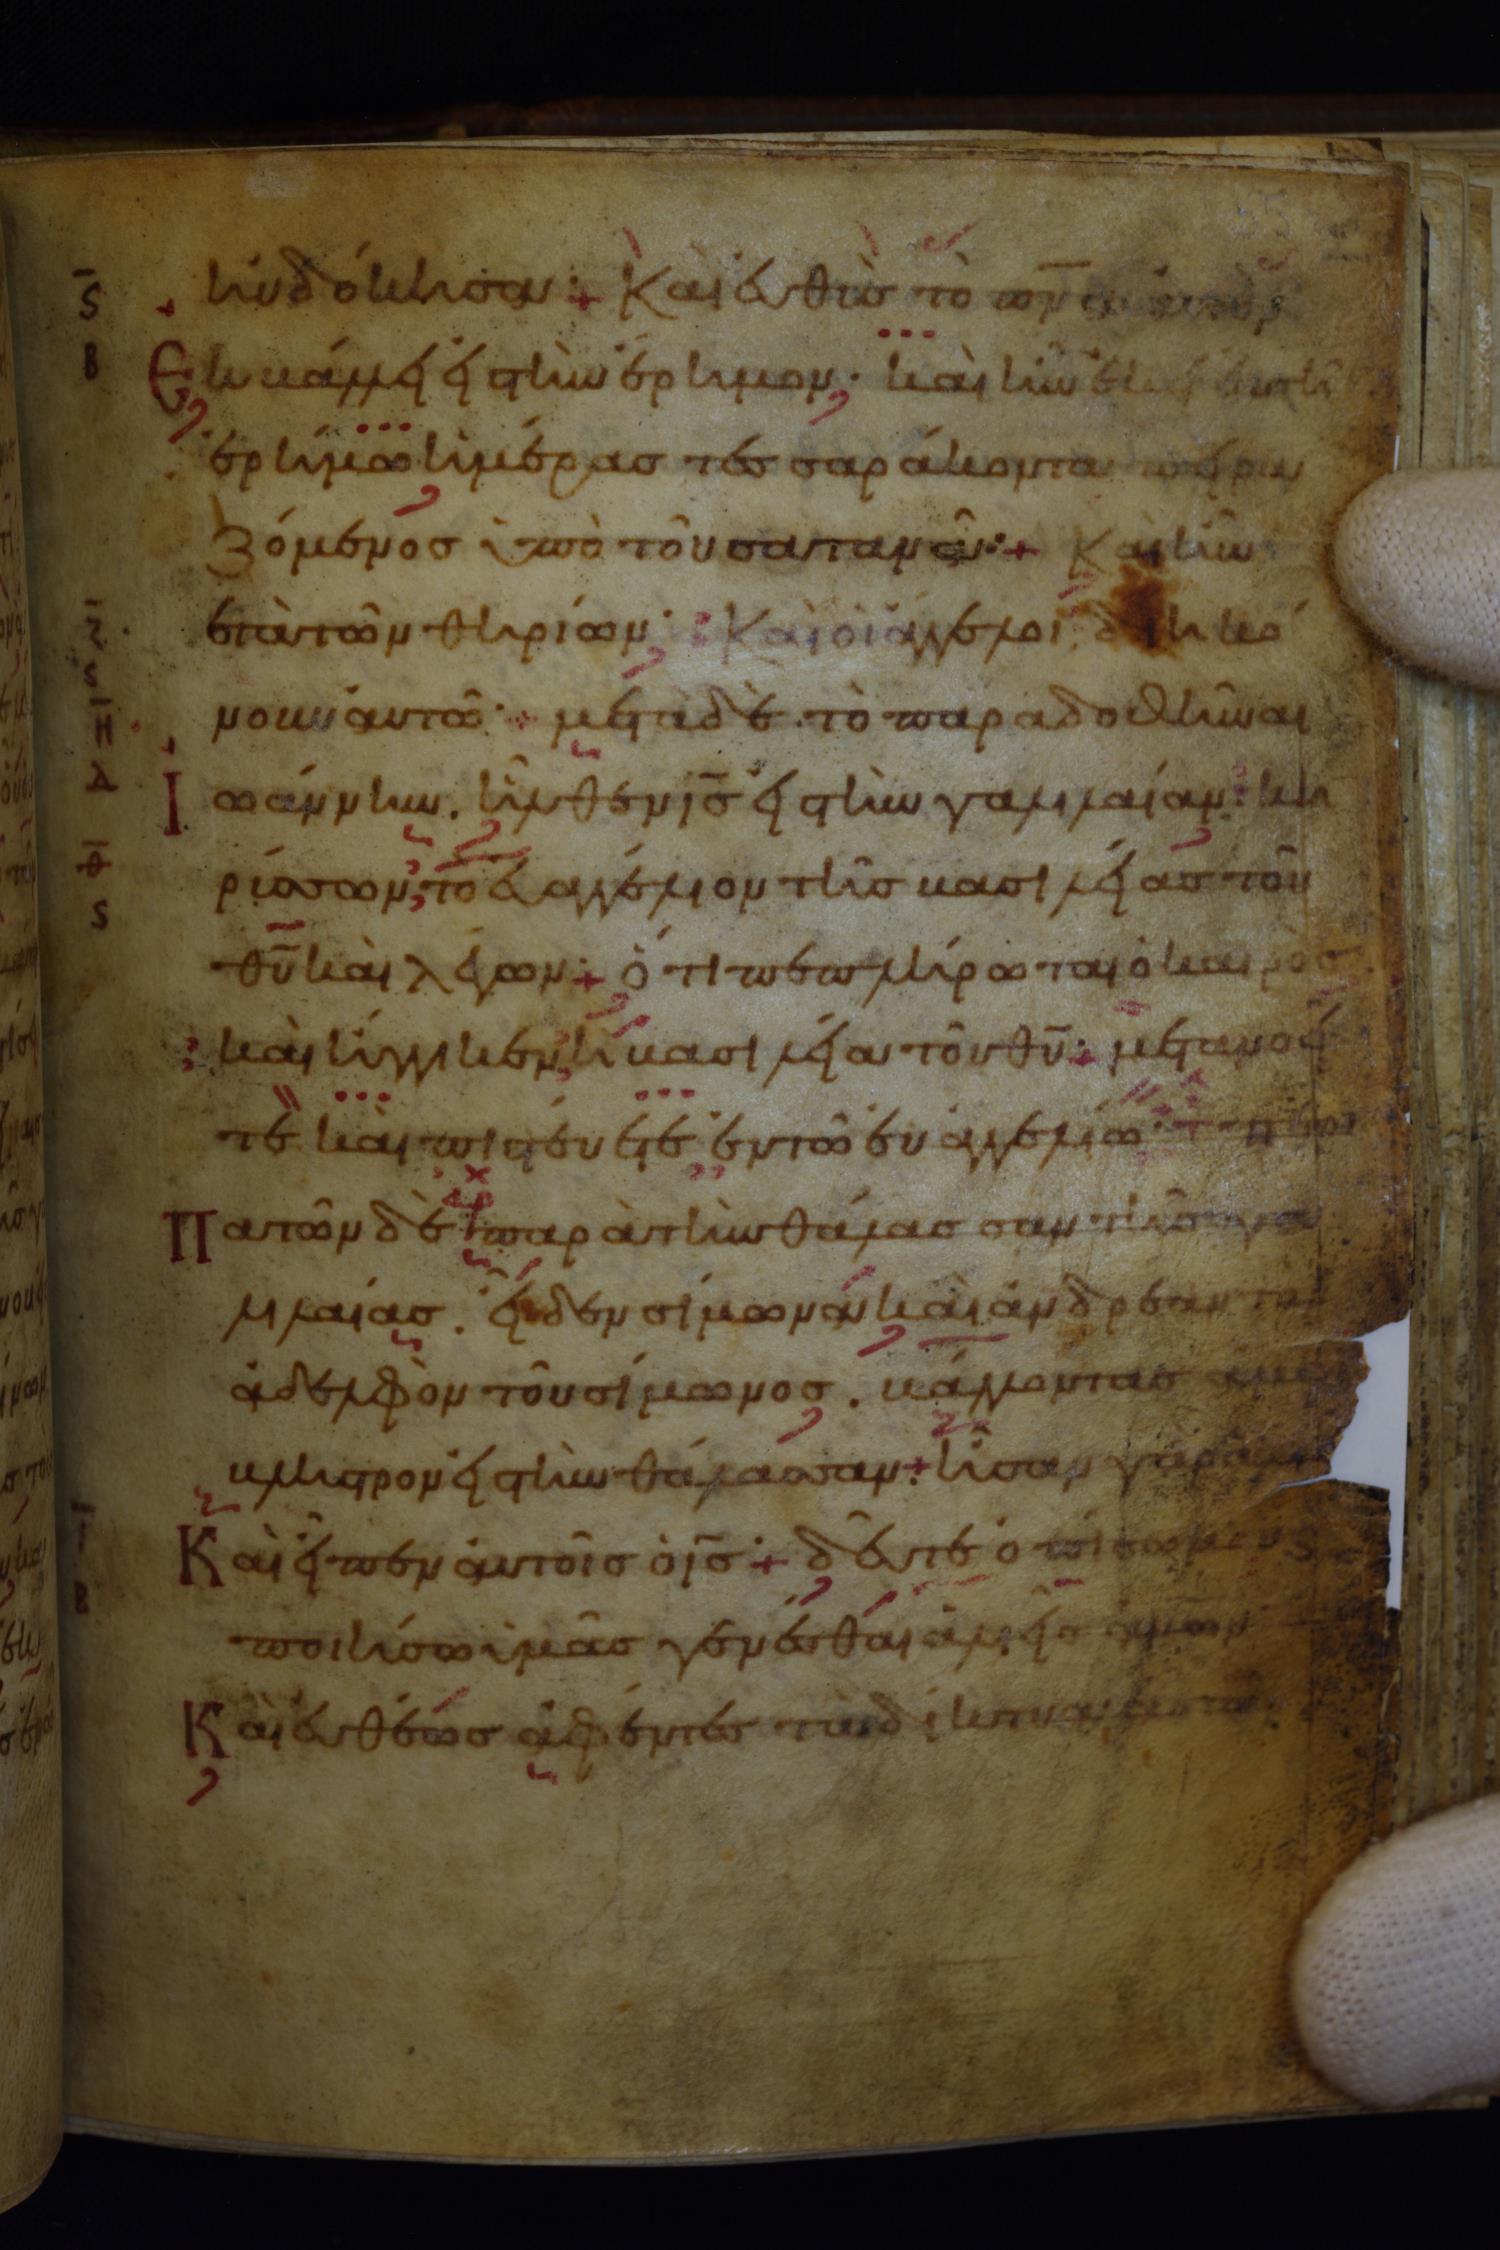 ηυδόκησα· + Καὶ ευθὺσ τὸ πν̅α
ς̅
Β
Εκβάλλει εἰς τὴν έρημον· καὶ ἦν ἐκεῖ ἐν τῆ
ερήμω ἡμέρασ τεσσαράκοντα πειρα
ζόμενοσ ὑπὸ τοῦ σατανᾶ· + Καὶ ἦν
μετὰ τῶν θηρίων· Καὶ οἱ ἄγγελοι διηκό
ζ̅
ς
νουν αυτῶ· + μετὰ δὲ τὸ παραδοθῆναι
Η̅
Δ
Ιωάννην. ἦλθεν ι̅σ̅ εἰς τὴν γαλιλαίαν· κη
ρύσσων τὸ ευαγγέλιον τῆσ βασιλείασ τοῦ
θ̅
ς
θ̅υ̅ καὶ λέγων· + ὅτι πεπλήρωται ὁ καιρὸσ
καὶ ήγγικεν ἡ βασιλεία τοῦ θ̅υ̅· + μετανοεῖ
τε καὶ πιστεύετε εν τῶ ευαγγελίω· + περι
Πατῶν δὲ παρὰ τὴν θάλασσαν τῆσ γα
λιλαίασ. εἶδεν σίμωνα καὶ ἀνδρέαν τὸν
ἀδελφὸν τοῦ σίμωνοσ. βάλλοντασ ἀμφί
βληστρον εἰς τὴν θάλασσαν· + ἦσαν γὰρ
ι̅
Β
Καὶ εἶπεν αυτοῖσ ὁ ι̅σ̅· + δεῦτε ὀπίσω μου
ποιήσω ὑμᾶσ γενέσθαι ἁλιεῖσ
Καὶ ευθέωσ ἀφέντεσ τὰ δίκτυα